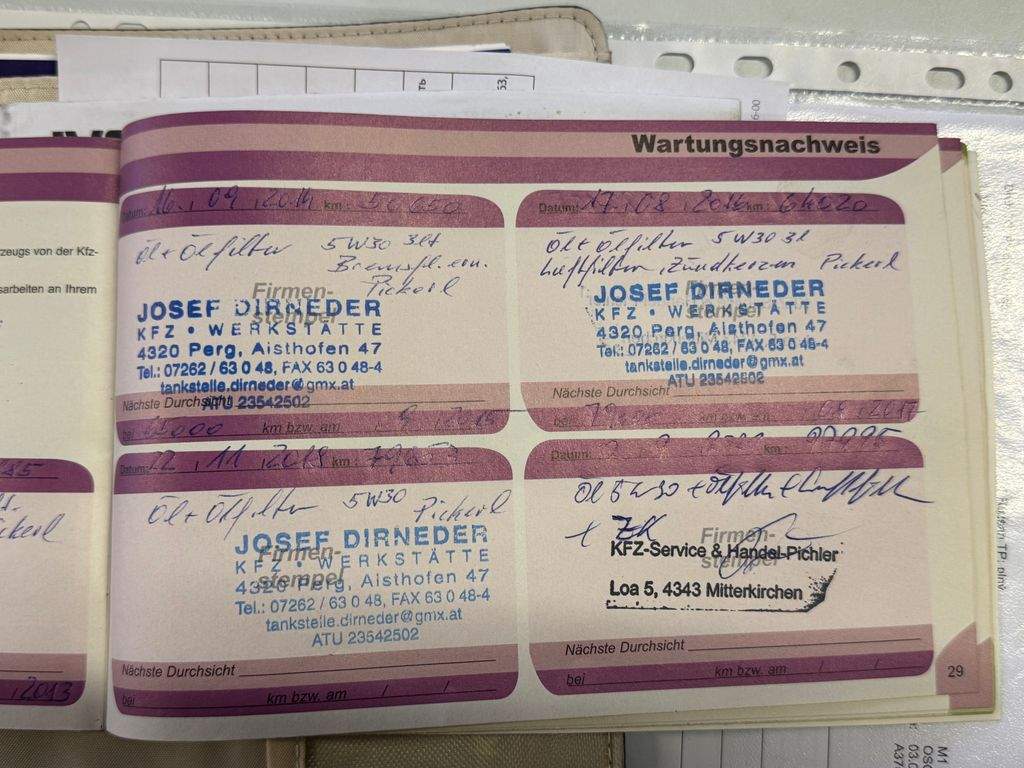 Wartungsnachweis
zeugs von der Kfz-
sarbeiten an Ihrem
2013
Datum: 16. 09. 2014 km: 50 650
Öl + Ölfilter 5W30 3lt
Bremsfl. ern.
Pickerl
Firmen-
stempel
JOSEF DIRNEDER
KFZ • WERKSTÄTTE
4320 Perg, Aisthofen 47
Tel.: 07262 / 63 0 48, FAX 63 0 48-4
tankstelle.dirneder@gmx.at
ATU 23542502
Nächste Durchsicht
bei 65000 km bzw. am 9 2015
Datum: 17. 08. 2016 km: 64520
Öl + Ölfilter 5W30 3l
Luftfilter, Zündkerzen Pickerl
Firmen-
stempel
JOSEF DIRNEDER
KFZ • WERKSTÄTTE
4320 Perg, Aisthofen 47
Tel.: 07262 / 63 0 48, FAX 63 0 48-4
tankstelle.dirneder@gmx.at
ATU 23542502
Nächste Durchsicht
bei km bzw. am 08 2017
Datum: 22. 11. 2018 km:
Öl + Ölfilter 5W30 Pickerl
Firmen-
stempel
JOSEF DIRNEDER
KFZ • WERKSTÄTTE
4320 Perg, Aisthofen 47
Tel.: 07262 / 63 0 48, FAX 63 0 48-4
tankstelle.dirneder@gmx.at
ATU 23542502
Nächste Durchsicht
bei km bzw. am / /
Datum: km:
Öl 5W30 + Ölfilter + Luftfilter
+ ZK
Firmen-
stempel
KFZ-Service & Handel-Pichler
Loa 5, 4343 Mitterkirchen
Nächste Durchsicht
bei km bzw. am / /
29